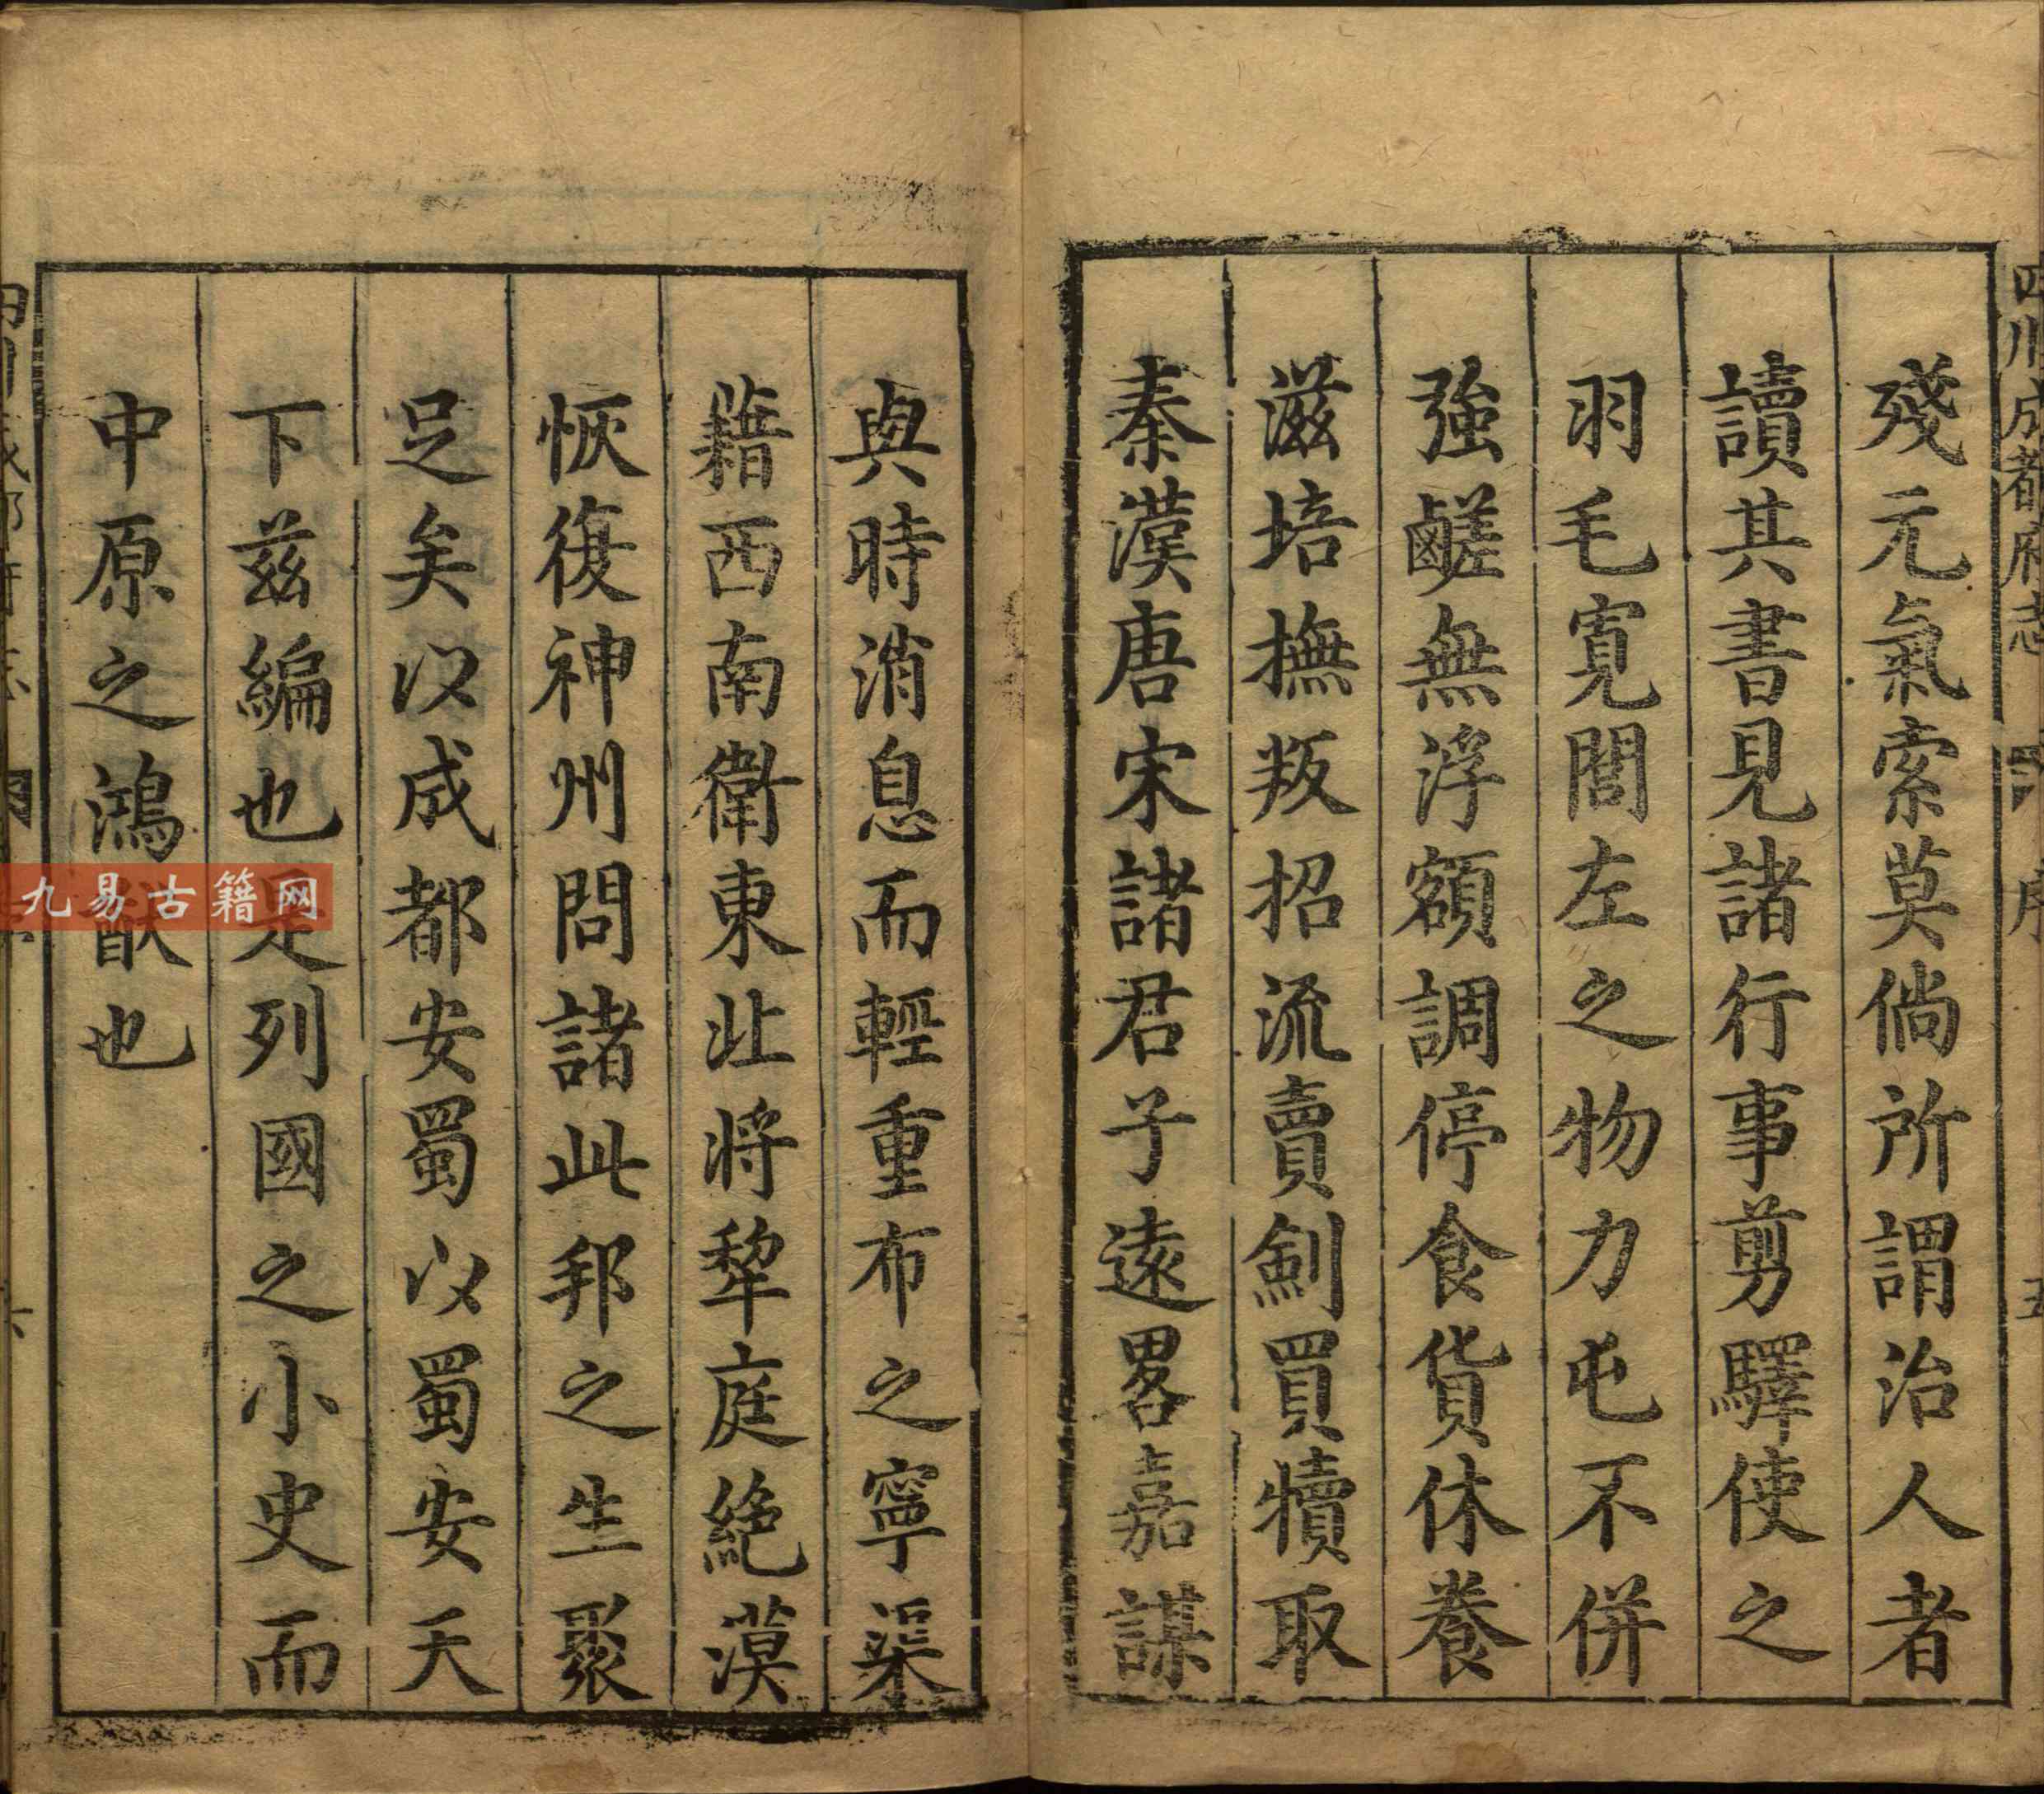 四川成都府志
序
五
殘元氣索莫倘所謂治人者
讀其書見諸行事剪驛使之
羽毛寬閭左之物力屯不併
強鹺無浮額調停食貨休養
滋培撫叛招流賣劍買犢取
秦漢唐宋諸君子遠畧嘉謀
與時消息而輕重布之寧渠
藉西南衛東北將犂庭絕漠
恢復神州問諸此邦之生聚
足矣以成都安蜀以蜀安天
下茲編也是列國之小史而
中原之鴻猷也
六
九易古籍网